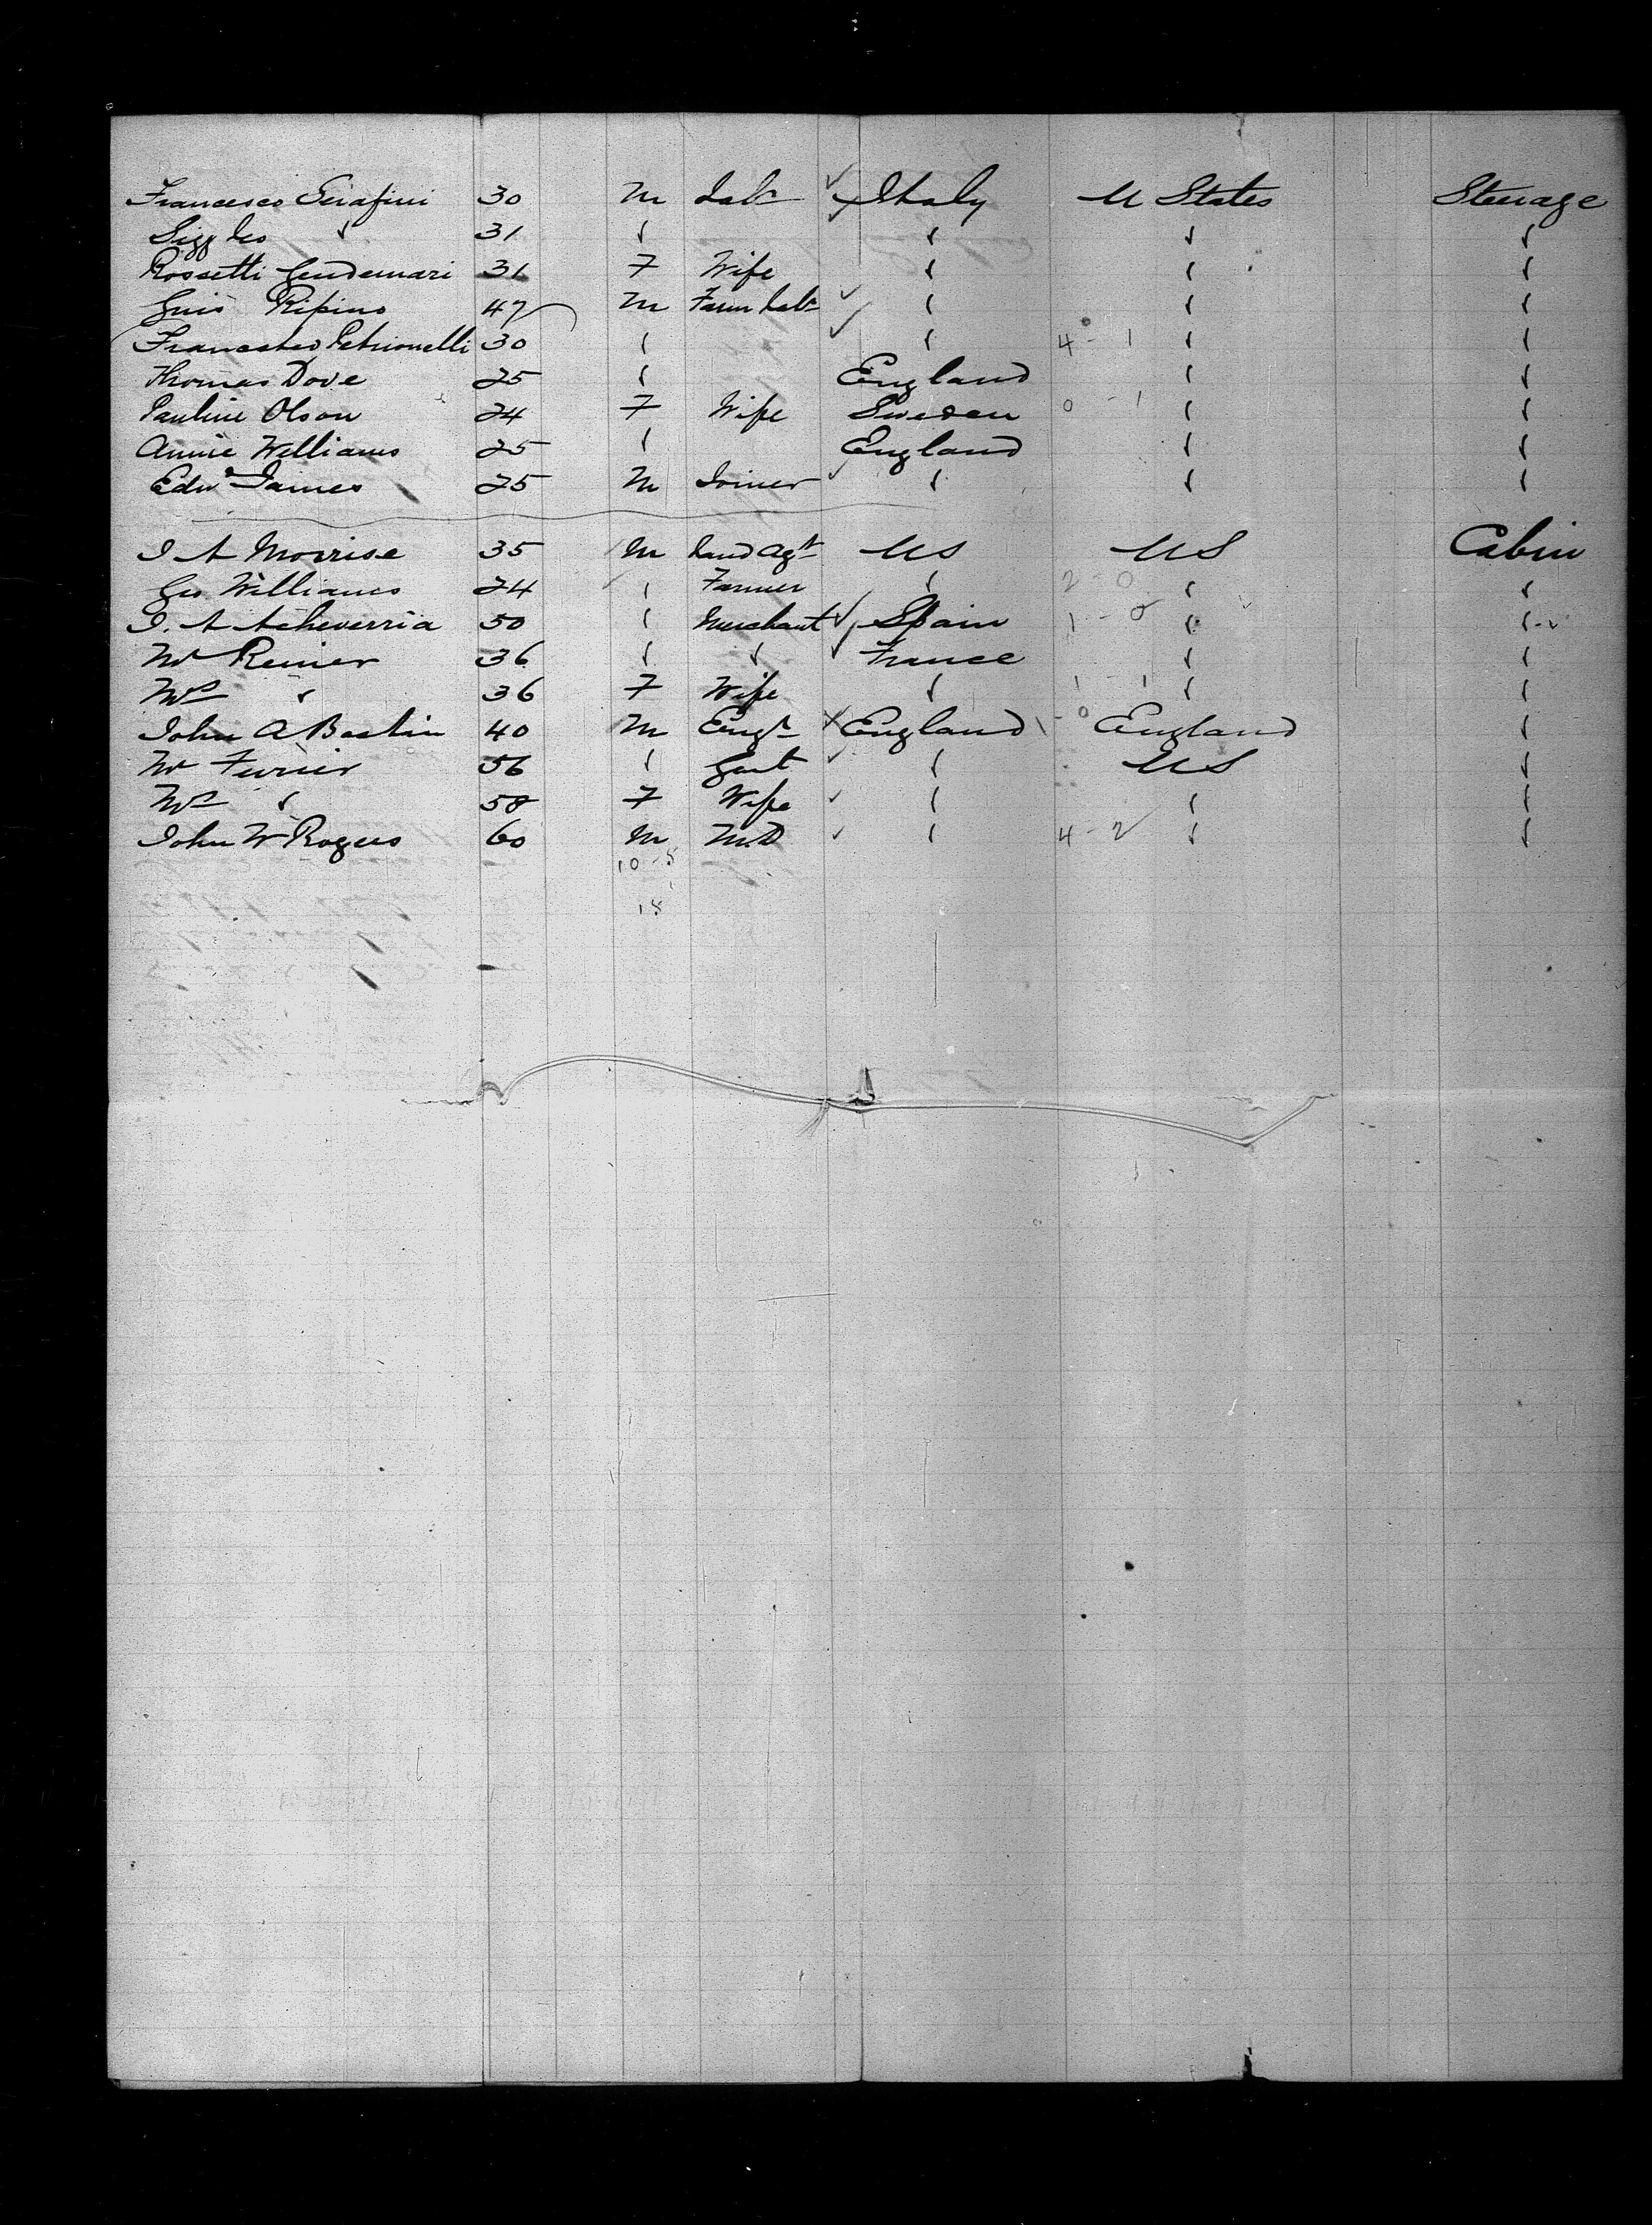 Francesco Serafini 30 m Labr Italy U States Steerage
" 31 " " " "
Rossetti 31 F Wife " " "
47 m Farm Labr " " "
Francesco Petrionelli 30 " " 4 - 1 " "
Thomas Dove 25 " England " "
Pauline Olson 24 F Wife Sweden 0 - 1 " "
Annie Williams 25 " England " "
Edwd James 25 m Joiner " " "
J A Morrise 35 m Land Agt US US Cabin
Geo. Williams 24 " Farmer " 2 - 0 " "
J. A Acheverria 50 " Merchant Spain 1 - 0 " "
Mr Renier 36 " " France " "
Mrs " 36 F Wife " 1 - 1 " "
John A Bastin 40 m Engr England 1 - 0 England "
Mr Furrier 56 " Gent " US "
Mrs " 58 F Wife " " "
John W Rogers 60 m M.D " 4 - 2 " "
10 - 8
18